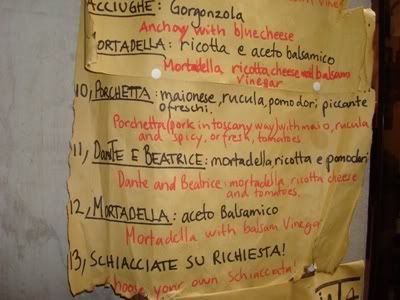 Vinegar
ACCIUGHE: Gorgonzola
Anchoy with bluecheese
MORTADELLA: ricotta e aceto balsamico
Mortadella ricotta cheese and balsam
Vinegar
10, PORCHETTA: maionese, rucula, pomodori piccante
o freschi.
Porchetta (pork in toscany way) with maio, rucula
and spicy, or fresh, tomatoes
11, DANTE E BEATRICE: mortadella, ricotta e pomodori
Dante and Beatrice: mortadella, ricotta cheese
and tomatoes.
12, MORTADELLA: aceto Balsamico
Mortadella with balsam Vinegar
13, SCHIACCIATE SU RICHIESTA!
Choose your own Schiacciata!